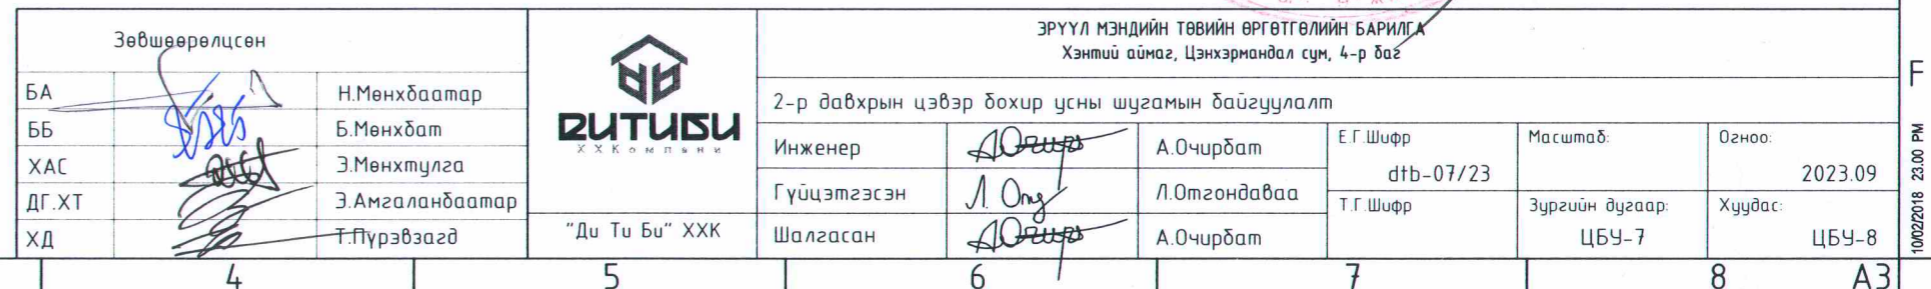 Зөвшөөрөлцсөн
БА Н.Мөнхбаатар
ББ Б.Мөнхбат
ХАС Э.Мөнхтулга
ДГ.ХТ Э.Амгаланбаатар
ХД Т.Пүрэвзагд
ДИТИБИ
ХХКомпани
"Ди Ти Би" ХХК
ЭРҮҮЛ МЭНДИЙН ТӨВИЙН ӨРГӨТГӨЛИЙН БАРИЛГА
Хэнтий аймаг, Цэнхэрмандал сум, 4-р баг
2-р давхрын цэвэр бохир усны шугамын байгуулалт
Инженер А.Очирбат
Гүйцэтгэсэн Л.Отгондаваа
Шалгасан А.Очирбат
Е.Г.Шифр
dtb-07/23
Масштаб:
Огноо:
2023.09
Т.Г.Шифр
Зургийн дугаар:
ЦБУ-7
Хуудас:
ЦБУ-8
F
10/02/2018 23.00 PM
4 5 6 7 8 A3